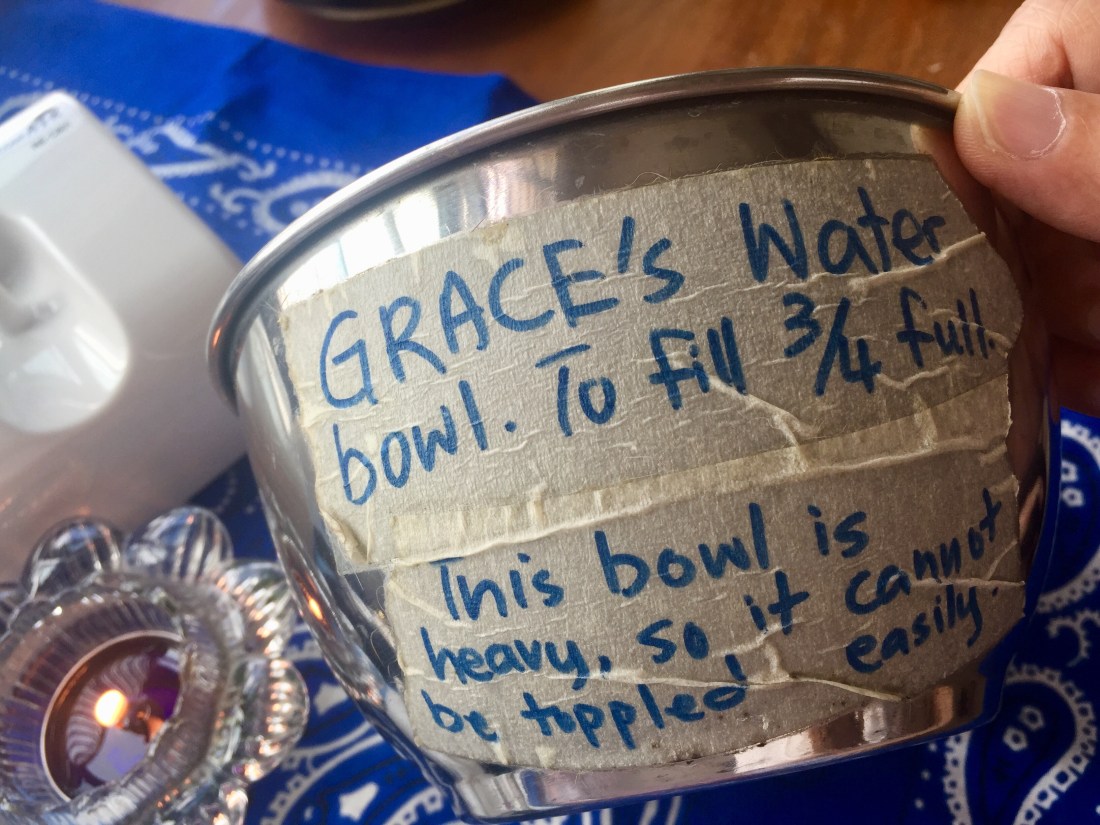 GRACE's Water
bowl. To fill 3/4 full.
This bowl is
heavy, so it cannot
be toppled easily.